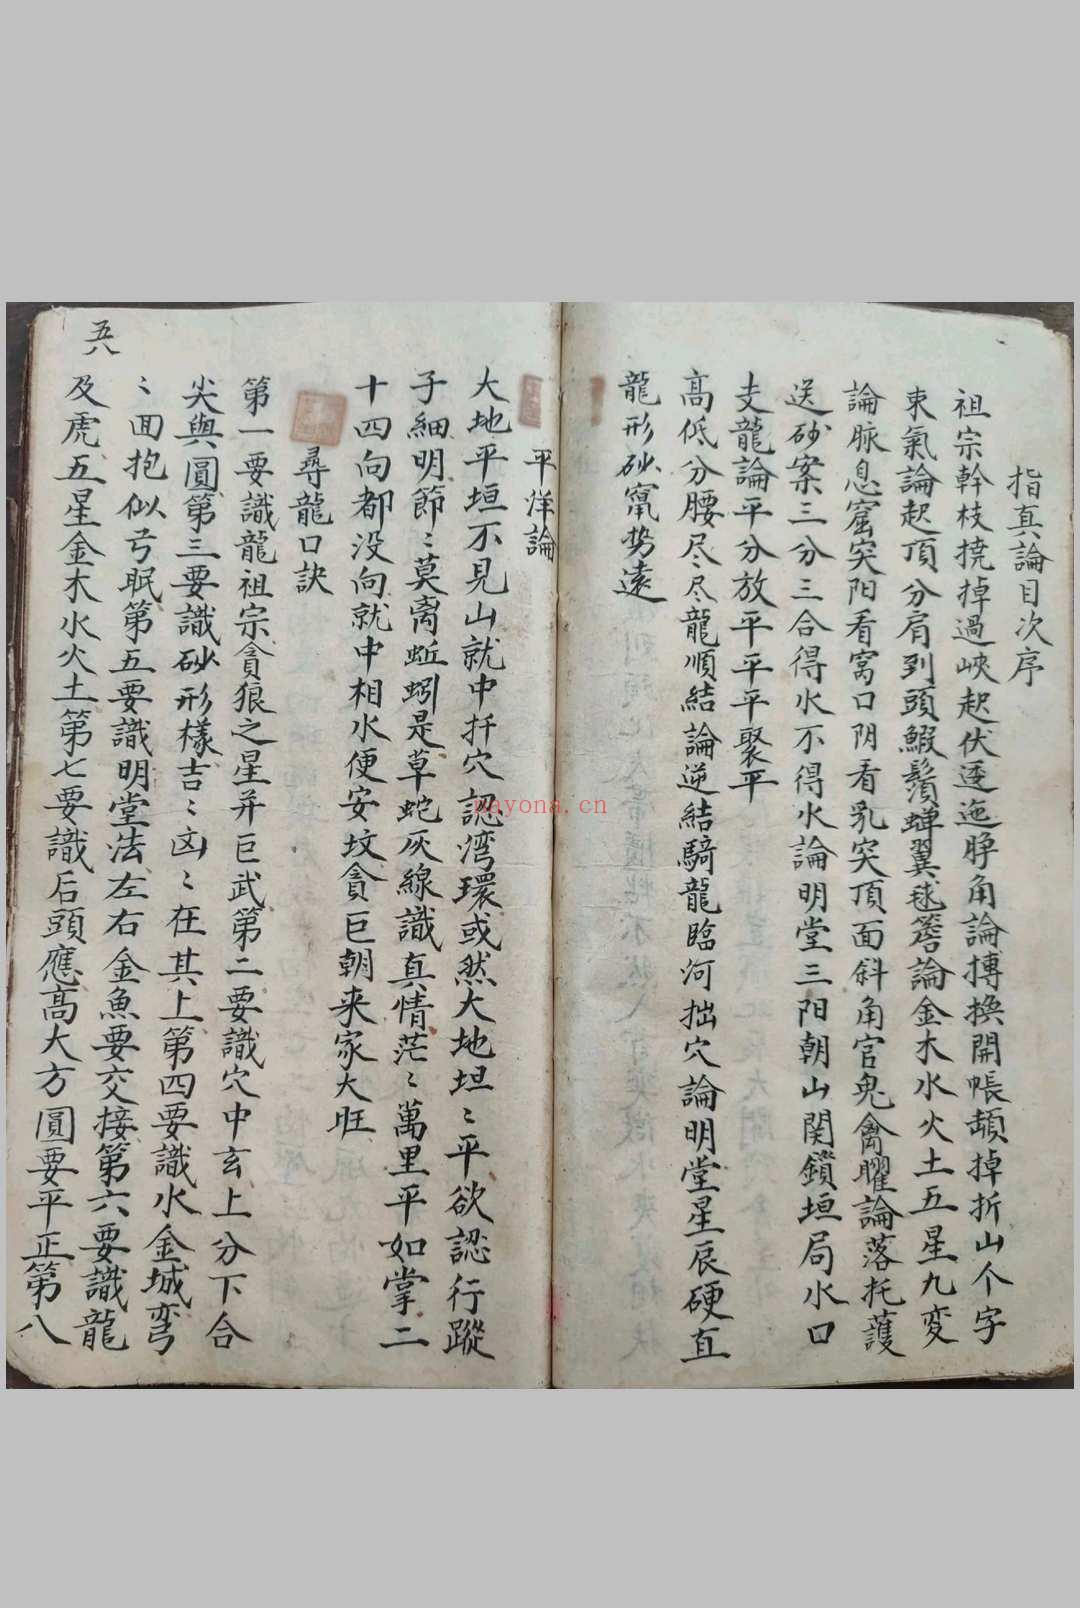 指真論目次序
祖宗幹枝撓掉過峽起伏逶迤腁角論摶換開帳頓掉折山个字
束氣論起頂分肩到頭鰕鬚蟬翼毬簷論金木水火土五星九変
論脉息窟突阳看窩口阴看乳突頂面斜角官鬼禽曜論落托護
送砂案三分三合得水不得水論明堂三阳朝山関鎖垣局水口
支龍論平分放平平平聚平
高低分腰尽尽龍順結論逆結騎龍臨河拙穴論明堂星辰硬直
龍形砂窩势遠
平洋論
大地平垣不見山就中扦穴認湾環或然大地坦〻平欲認行蹤
子細明節〻莫离蚯蚓是草蛇灰線識真情茫〻萬里平如掌二
十四向都没向就中相水便安坟貪巨朝来家大旺
尋龍口訣
第一要識龍祖宗貪狼之星并巨武第二要識穴中玄上分下合
尖與圓第三要識砂形樣吉〻凶〻在其上第四要識水金城弯
〻回抱似弓眠第五要識明堂法左右金魚要交接第六要識龍
及虎五星金木水火土第七要識后頭應高大方圓要平正第八
五八
nayona.cn